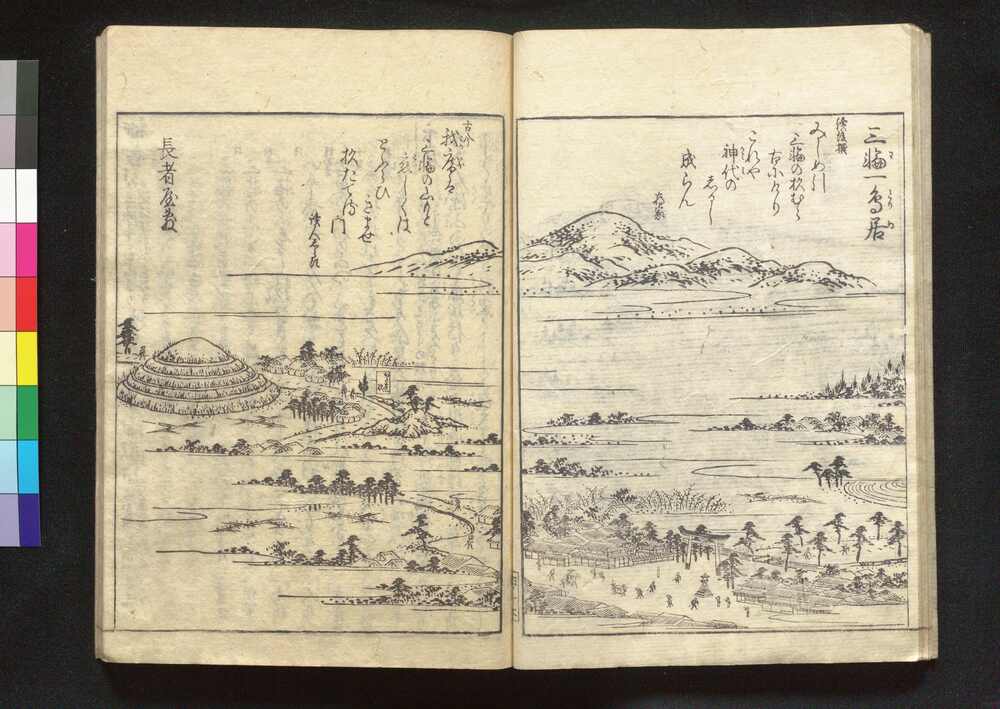 三輪一鳥居
みしめ引
三輪の杉むら
ふりにけり
これや
神代の
しるし
成らん
為家
古今
我庵は
三輪の山もと
恋しくは
とふらひ
きませ
杉たてる
門
読人しらす
長者屋敷